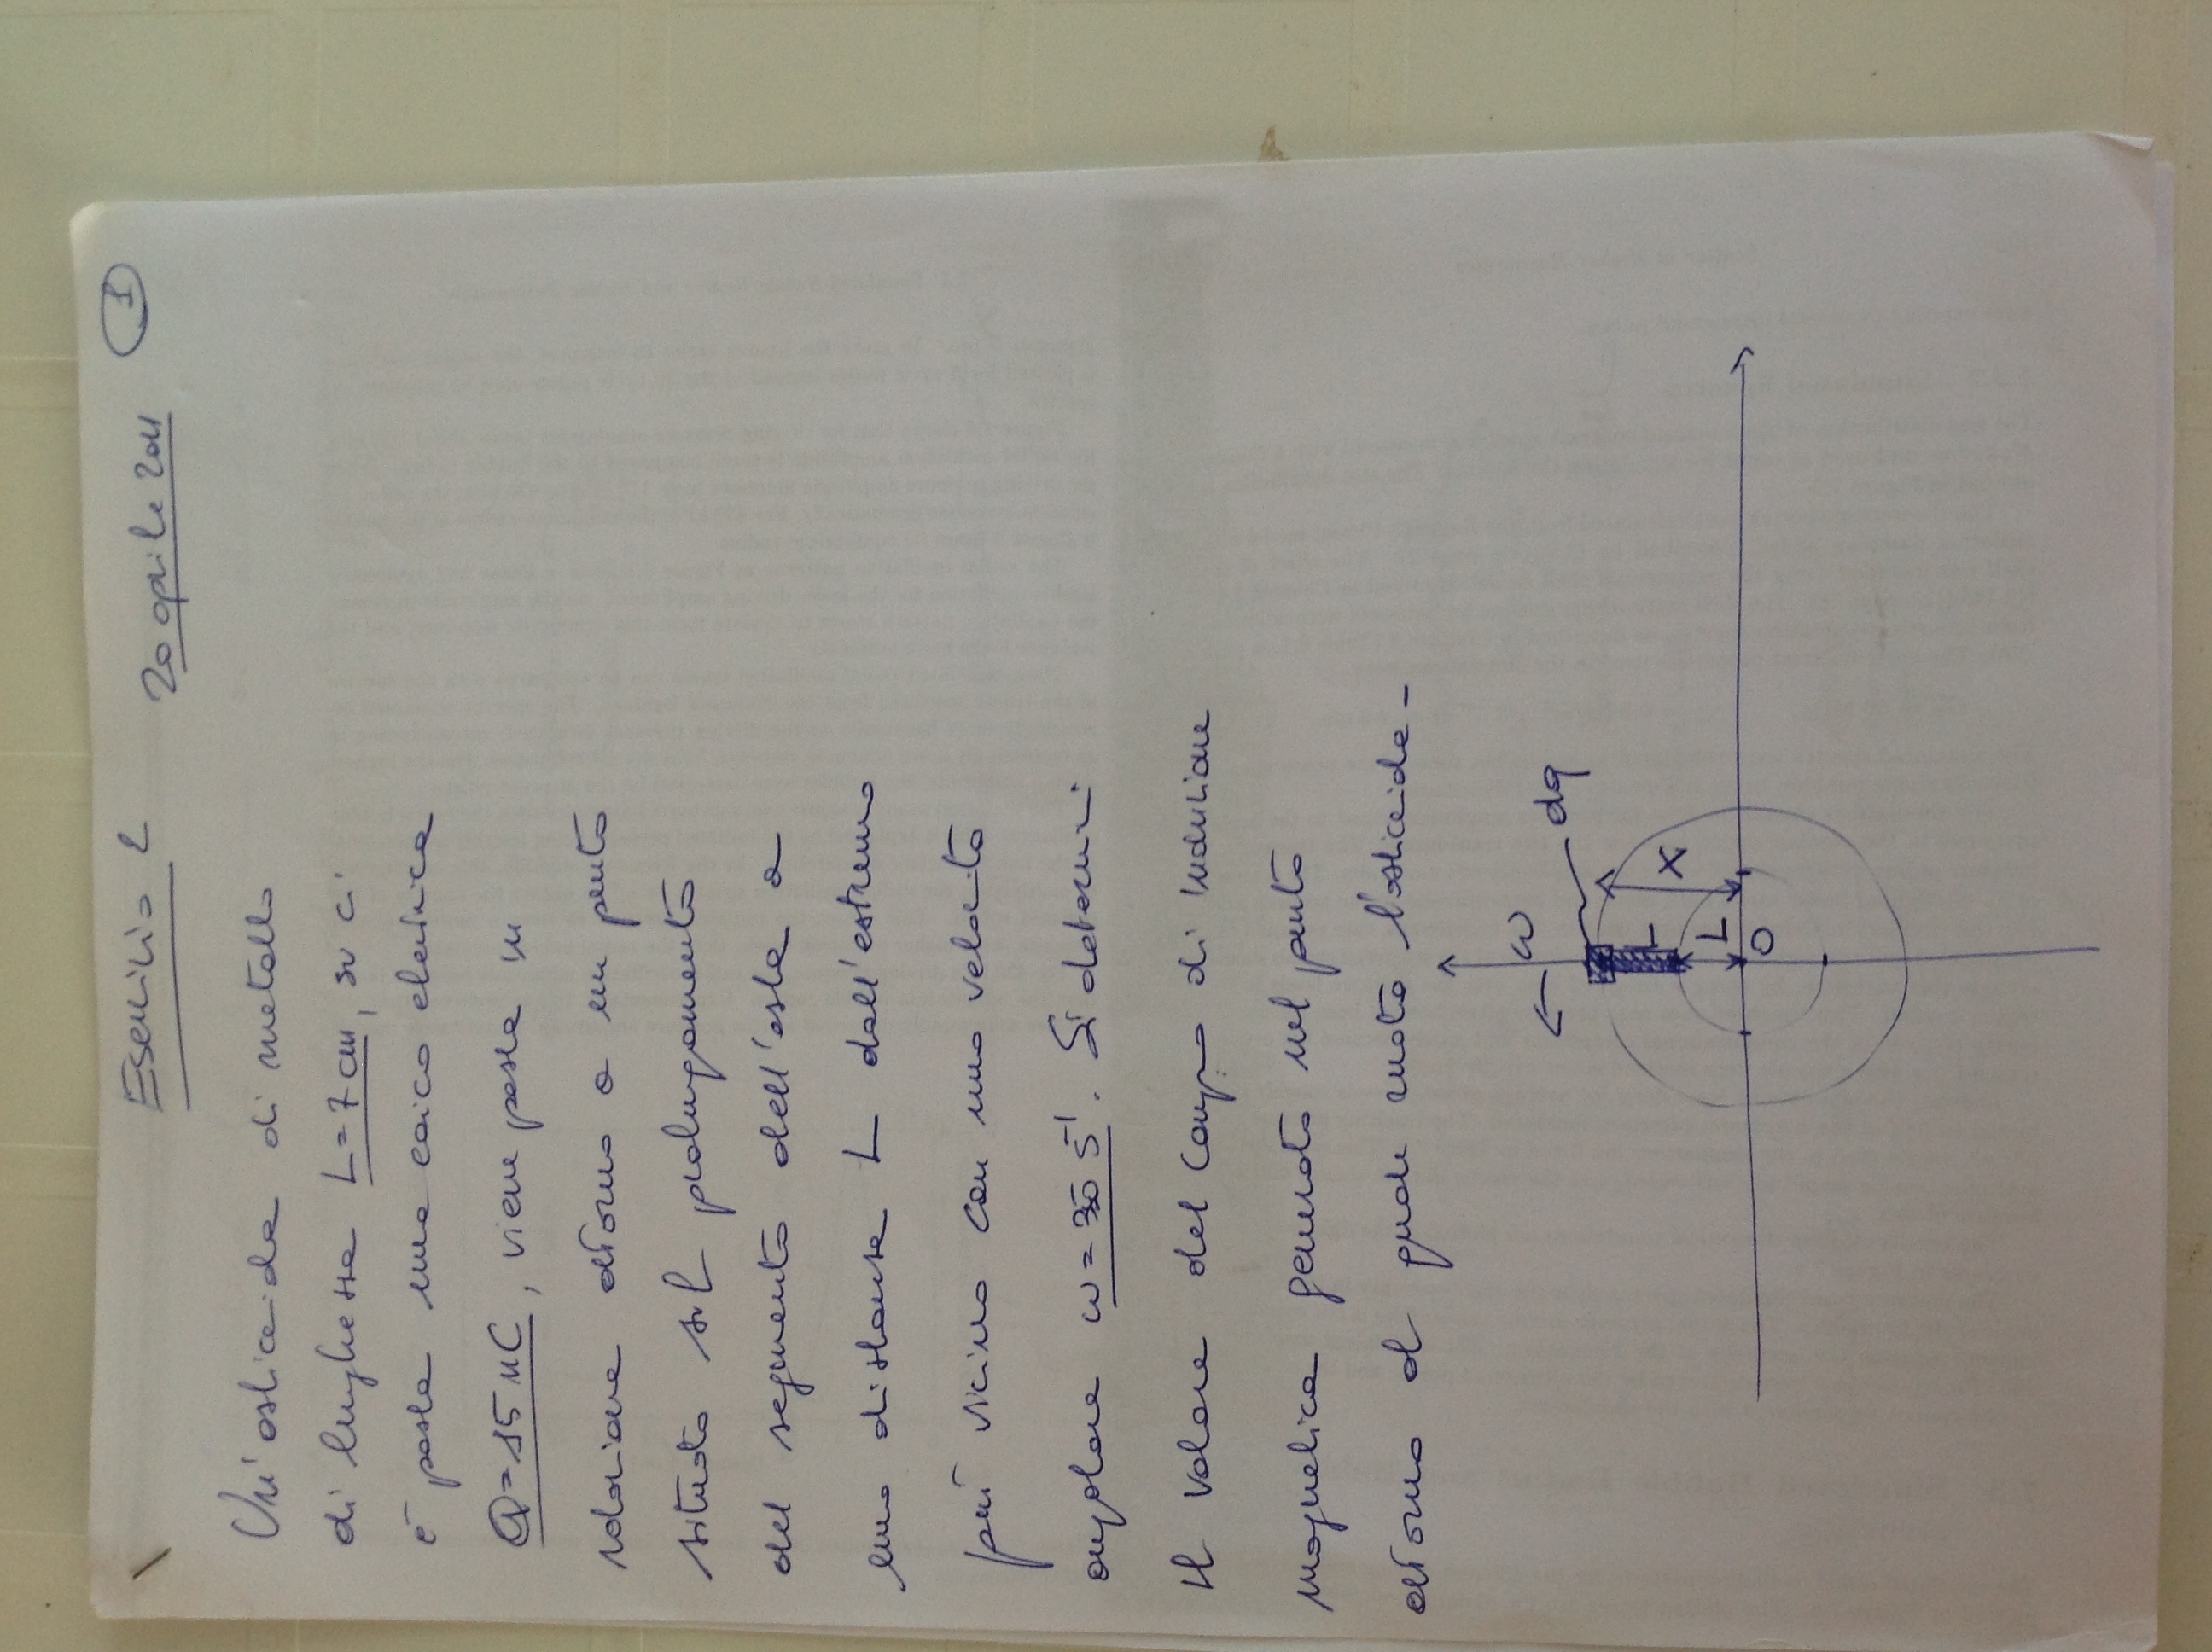 Esercizio 2
20 aprile 2011
1
Un'asticciola di metallo
di lunghezza L=7 cm, su cui
è posta una carica elettrica
Q=15 μC, viene posta in
rotazione attorno a un punto
situato sul prolungamento
del segmento dell'asta a
una distanza L dall'estremo
più vicino con una velocità
angolare ω=30 s⁻¹. Si determini
il valore del campo di induzione
magnetica generato nel punto
attorno al quale ruota l'asticciola-
ω
dq
L
X
L
O